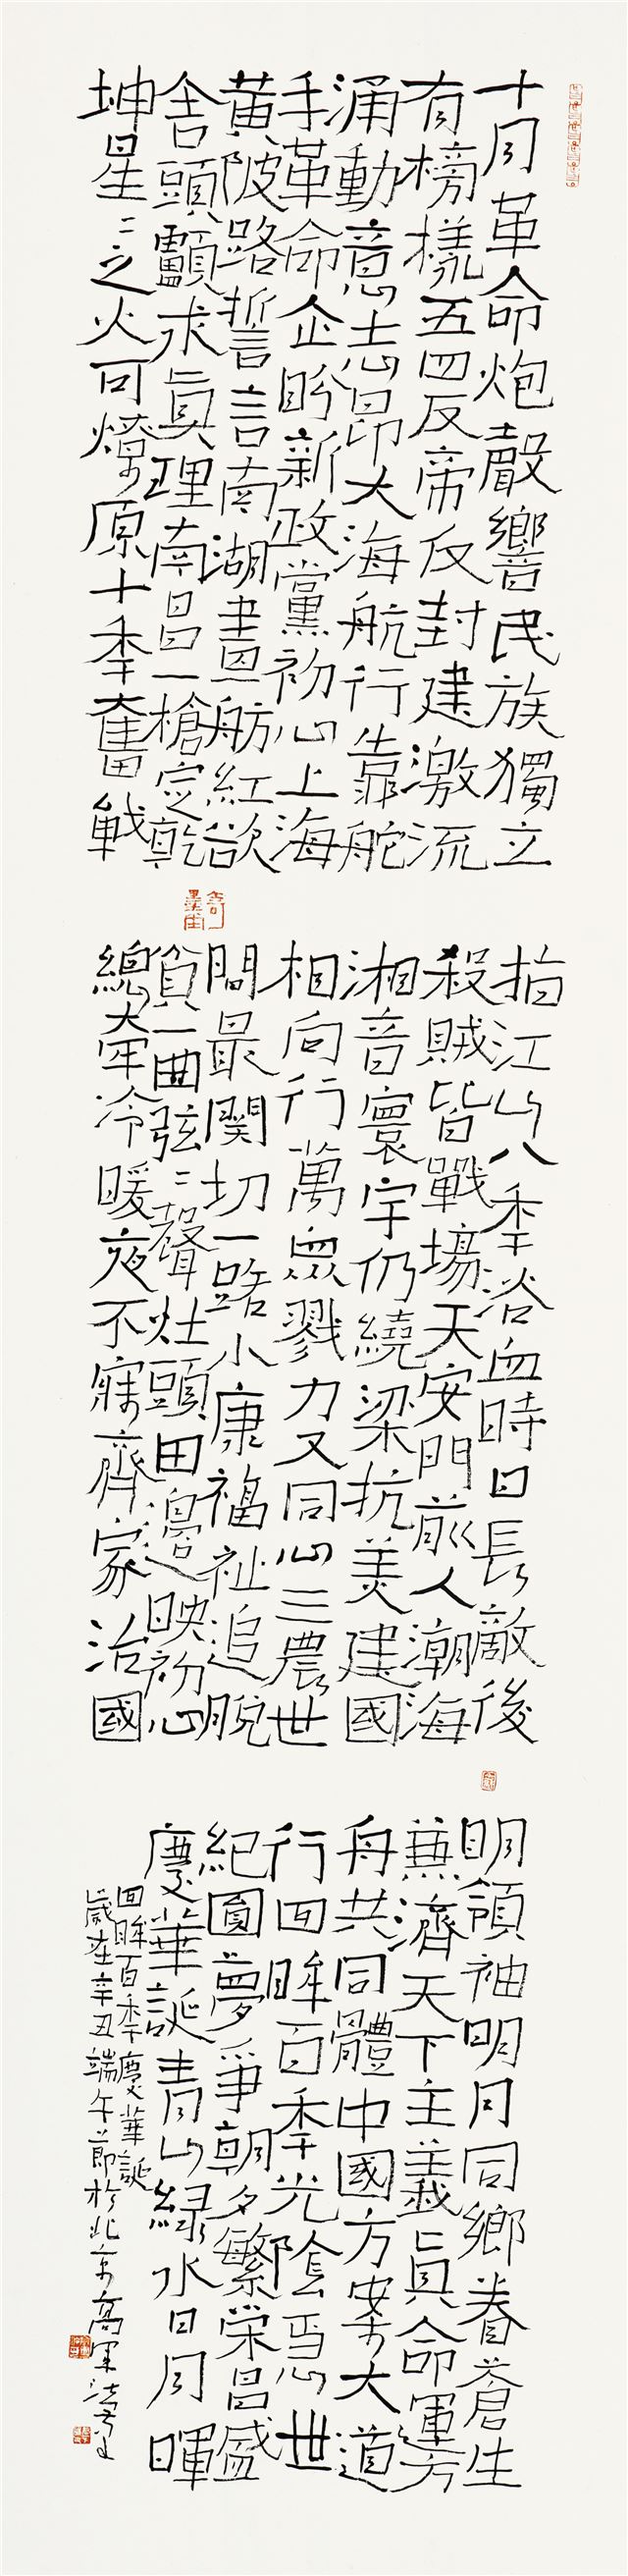 十月革命炮聲響民族獨立
有榜樣五四反帝反封建激流
涌動意志昂大海航行靠舵
手革命企盼新政黨初心上海
黃陂路誓言南湖畫舫紅欲
舍頭顱求真理南昌一槍定乾
坤星々之火可燎原十季奮戰
指江山八季浴血時日長敵後
殺賊皆戰場天安門前人潮海
湘音寰宇仍繞梁抗美建國
相向行萬眾戮力又同心三農世
間最關切一路小康福祉追脫
貧一曲弦々聲灶頭田邊映初心
總牽冷暖夜不寐齊家治國
明領袖明月同鄉眷蒼生
兼濟天下主義真命運方
舟共同體中國方案大道
行回眸百季光陰馬世
紀圓夢爭朝夕繁荣昌盛
慶華誕青山綠水日月暉
回眸百季慶華誕
歲在辛丑端午節於北京高軍法